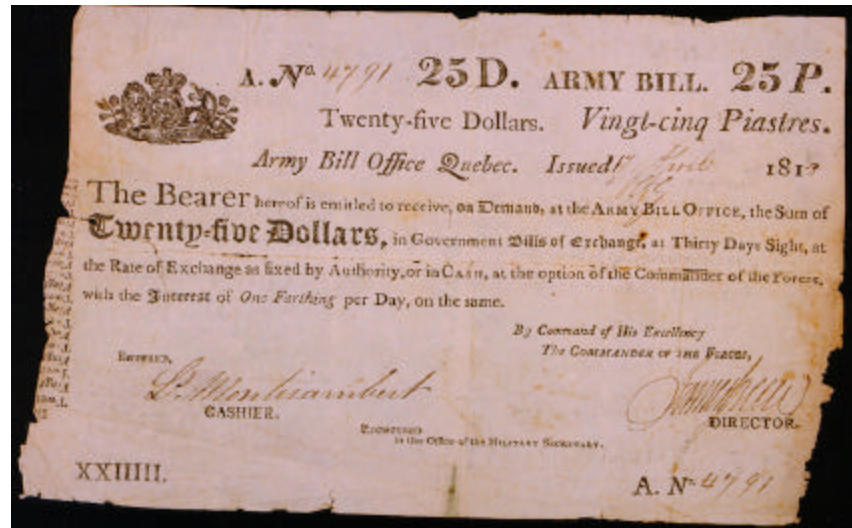 A. No. 4791 25 D. ARMY BILL. 25 P.
Twenty-five Dollars. Vingt-cinq Piastres.
Army Bill Office Quebec. Issued 181
The Bearer hereof is entitled to receive, on Demand, at the ARMY BILL OFFICE, the Sum of
Twenty-five Dollars, in Government Bills of Exchange, at Thirty Days Sight, at
the Rate of Exchange as fixed by Authority, or in CASH, at the option of the Commander of the Forces,
with the Interest of One Farthing per Day, on the same.
By Command of His Excellency
The COMMANDER OF THE FORCES,
ENTERED,
L. Montizambert
CASHIER.
DIRECTOR.
REGISTERED
in the Office of the MILITARY SECRETARY.
XXIIIII.
A. No. 4791